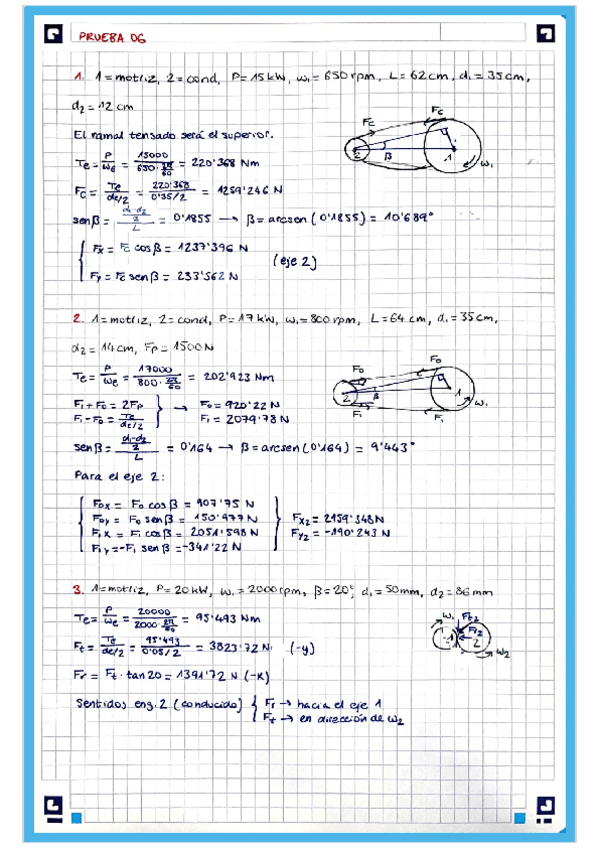 PRUEBA 06
1. 1=motriz, 2=cond, P=15kW, ω₁=650rpm, L=62cm, d₁=35cm,
d₂=12cm
El ramal tensado será el superior.
Te = P/ωe = 15000/(650·2π/60) = 220'368 Nm
Fc = Te/(de/2) = 220'368/(0'35/2) = 1259'246 N
senβ = ((d₁-d₂)/2)/L = 0'1855 → β=arcsen(0'1855) = 10'689°
Fx = Fc cosβ = 1237'396 N
(eje 2)
Fy = Fc senβ = 233'562 N
Fc
Fc
2
β
1
ω₁
2. 1=motriz, 2=cond, P=17kW, ω₁=800rpm, L=64cm, d₁=35cm,
d₂=14cm, Fp=1500N
Te = P/ωe = 17000/(800·2π/60) = 202'923 Nm
F₁+F₀ = 2Fp → F₀ = 920'22 N
F₁-F₀ = Te/(de/2) F₁ = 2079'78 N
senβ = ((d₁-d₂)/2)/L = 0'164 → β=arcsen(0'164) = 9'443°
F₀
F₀
2
β
1
ω₁
F₁
F₁
Para el eje 2:
F₀x = F₀ cosβ = 907'75 N
F₀y = F₀ senβ = 150'977 N
F₁x = F₁ cosβ = 2051'598 N
F₁y = -F₁ senβ = -341'22 N
Fx₂ = 2959'348N
Fy₂ = -190'243 N
3. 1=motriz, P=20kW, ω₁=2000rpm, β=20°, d₁=50mm, d₂=86mm
Te = P/ωe = 20000/(2000·2π/60) = 95'493 Nm
Ft = Te/(de/2) = 95'493/(0'05/2) = 3823'72 N (-y)
Fr = Ft·tan20 = 1391'72 N (-x)
Sentidos eng. 2 (conducido) { Fr → hacia el eje 1
Ft → en dirección de ω₂
ω₁
Ft₂
Fr₂
1
2
ω₂